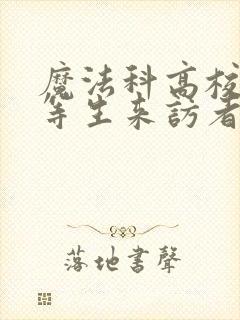 魔法科高校
等生来訪者
落地書聲